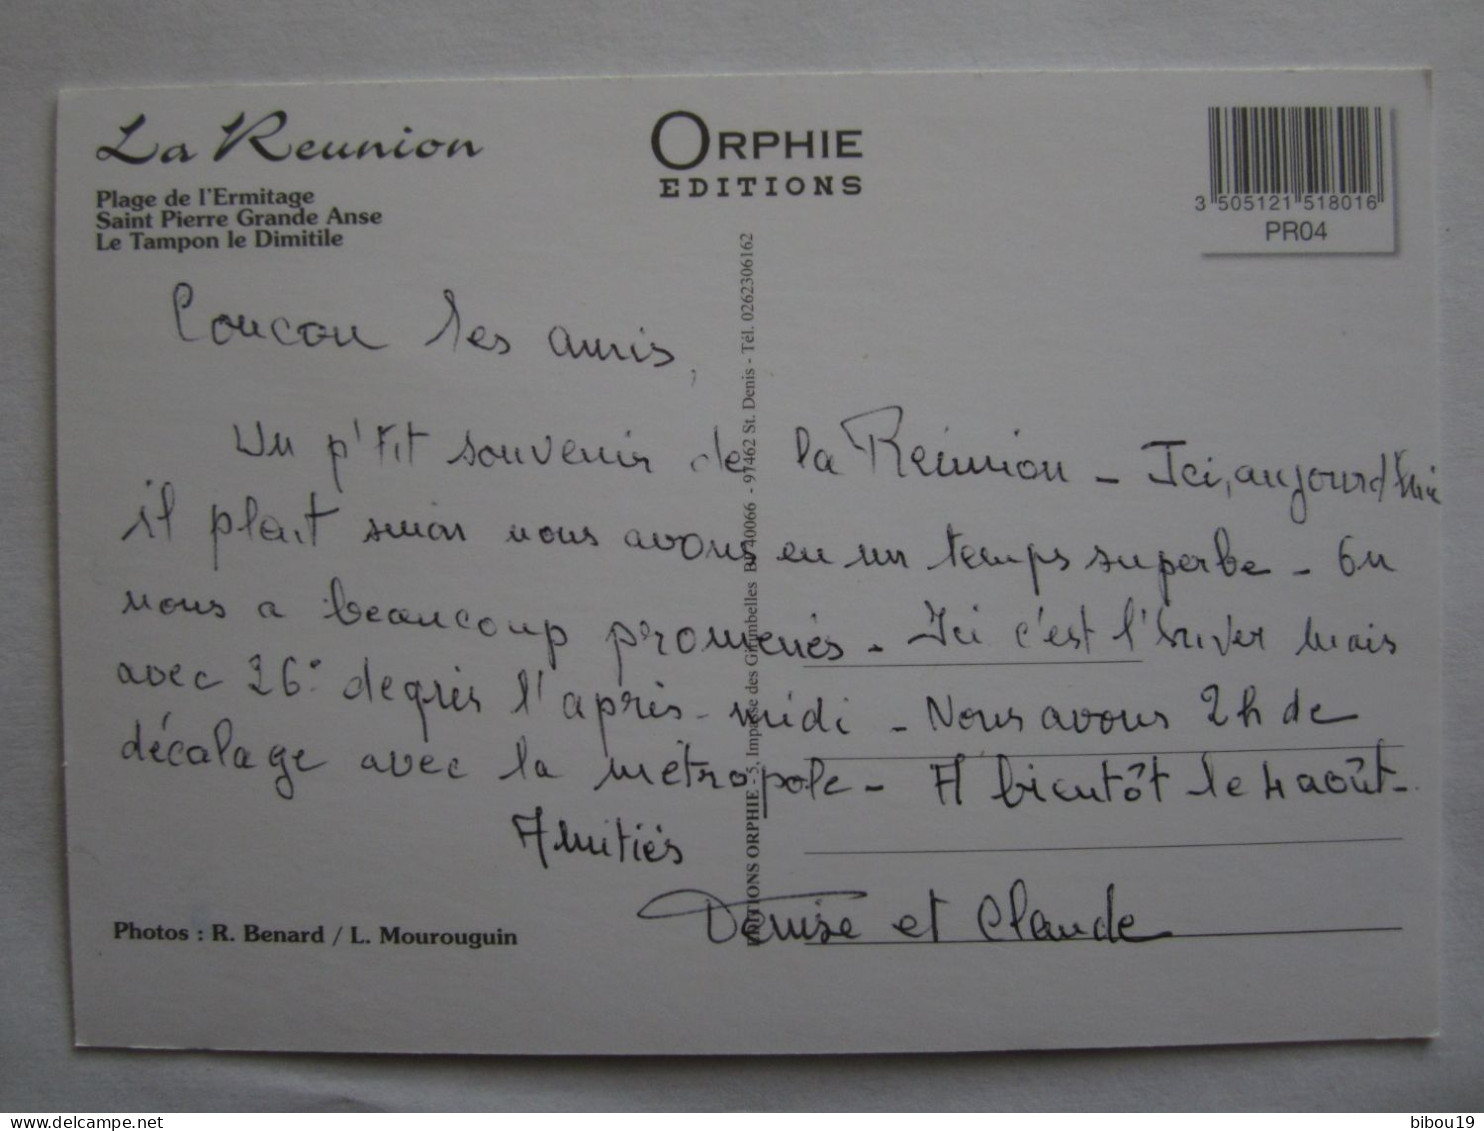 La Reunion
Plage de l'Ermitage
Saint Pierre Grande Anse
Le Tampon le Dimitile
ORPHIE
EDITIONS
3 505121 518016
PR04
Coucou les amis,
Un p'tit souvenir de la Réunion - Ici, aujourd'hui
il pleut sinon nous avons eu un temps superbe - On
nous a beaucoup promenés - Ici c'est l'hiver mais
avec 26° degrés l'après-midi - Nous avons 2h de
décalage avec la métropole - A bientôt le 4 août -
Amitiés
Denise et Claude
Photos : R. Benard / L. Mourouguin
EDITIONS ORPHIE - 5, Impasse des Girimbelles BP 40066 - 97462 St. Denis - Tél. 0262306162
bibou19